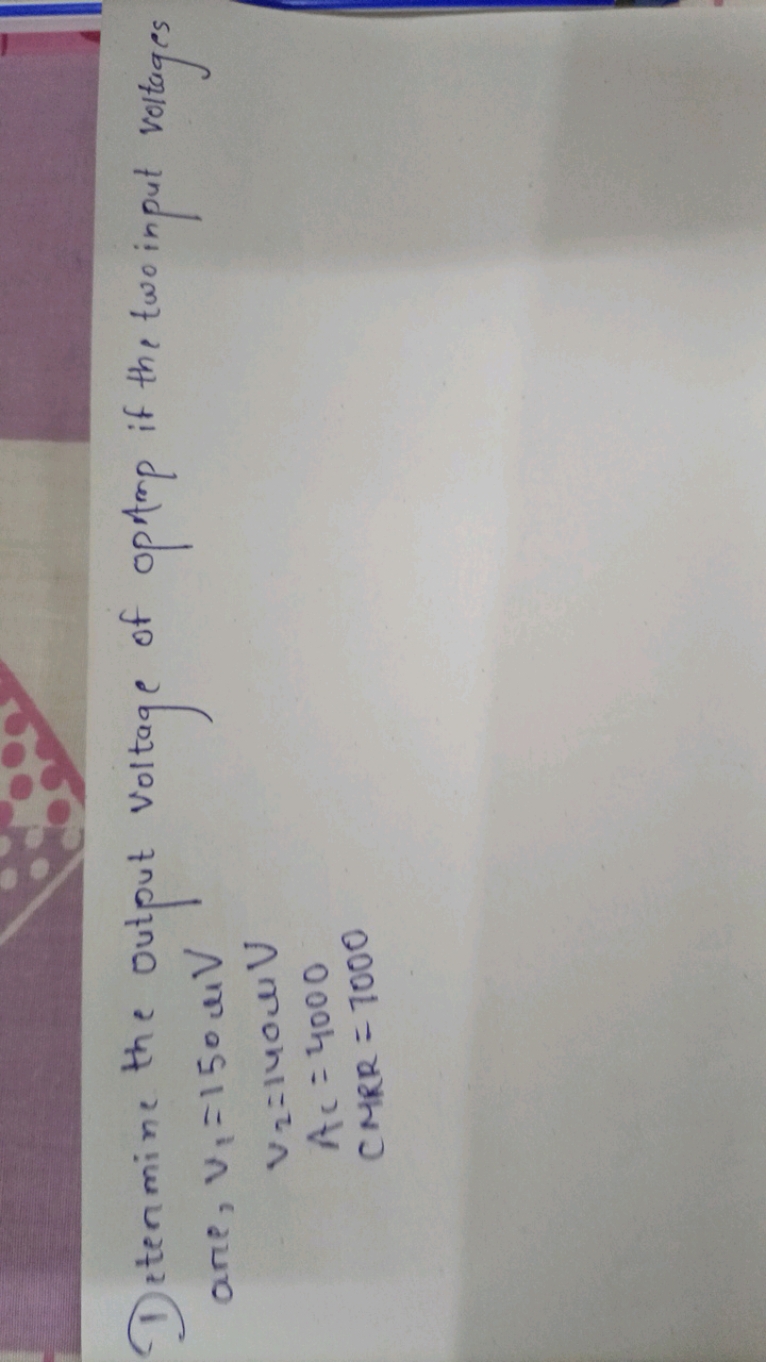 Determine the output voltage of opAmp if the two input voltages
are, V1 = 150 uV
V2 = 140 uV
Ac = 4000
CMRR = 1000